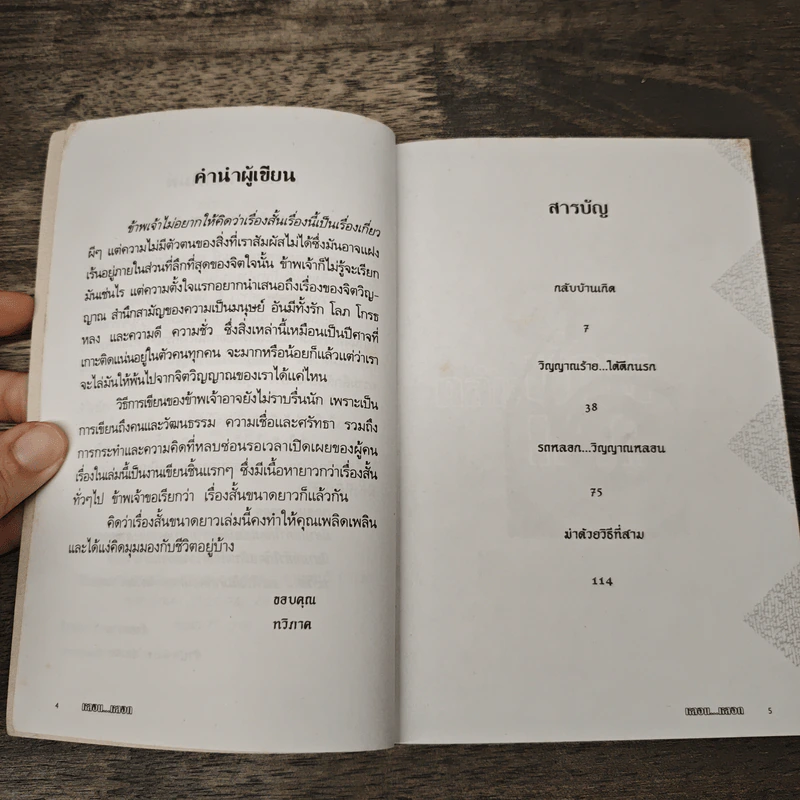 คำนำผู้เขียน
ข้าพเจ้าไม่อยากให้คิดว่าเรื่องสั้นเรื่องนี้เป็นเรื่องเกี่ยว
ผีๆ แต่ความไม่มีตัวตนของสิ่งที่เราสัมผัสไม่ได้ซึ่งมันอาจแฝง
เร้นอยู่ภายในส่วนที่ลึกที่สุดของจิตใจนั้น ข้าพเจ้าก็ไม่รู้จะเรียก
มันเช่นไร แต่ความตั้งใจแรกอยากนำเสนอถึงเรื่องของจิตวิญ-
ญาณ สำนึกสามัญของความเป็นมนุษย์ อันมีทั้งรัก โลภ โกรธ
หลง และความดี ความชั่ว ซึ่งสิ่งเหล่านี้เหมือนเป็นปีศาจที่
เกาะติดแน่นอยู่ในตัวคนทุกคน จะมากหรือน้อยก็แล้วแต่ว่าเรา
จะไล่มันให้พ้นไปจากจิตวิญญาณของเราได้แค่ไหน
วิธีการเขียนของข้าพเจ้าอาจยังไม่ราบรื่นนัก เพราะเป็น
การเขียนถึงคนและวัฒนธรรม ความเชื่อและศรัทธา รวมถึง
การกระทำและความคิดที่หลบซ่อนรอเวลาเปิดเผยของผู้คน
เรื่องในเล่มนี้เป็นงานเขียนชิ้นแรกๆ ซึ่งมีเนื้อหายาวกว่าเรื่องสั้น
ทั่วๆไป ข้าพเจ้าขอเรียกว่า เรื่องสั้นขนาดยาวก็แล้วกัน
คิดว่าเรื่องสั้นขนาดยาวเล่มนี้คงทำให้คุณเพลิดเพลิน
และได้แง่คิดมุมมองกับชีวิตอยู่บ้าง
ขอบคุณ
ทวิภาค
4 หลอน...หลอก
สารบัญ
กลับบ้านเกิด
7
วิญญาณร้าย...ใต้ตึกนรก
38
รถหลอก...วิญญาณหลอน
75
ฆ่าด้วยวิธีที่สาม
114
หลอน...หลอก 5